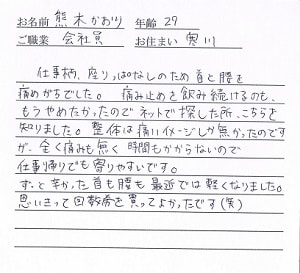 お名前 熊木かおり 年齢 29
ご職業 会社員 お住まい 寒川
仕事柄、座りっぱなしのため首と腰を
痛めがちでした。 痛み止めを飲み続けるのも、
もうやめたかったのでネットで探した所、こちらを
知りました。整体は痛いイメージしか無かったのです
が、全く痛みも無く時間もかからないので
仕事帰りでも寄りやすいです。
ずっと辛かった首も腰も最近では軽くなりました。
思いきって回数券を買ってよかったです(笑)